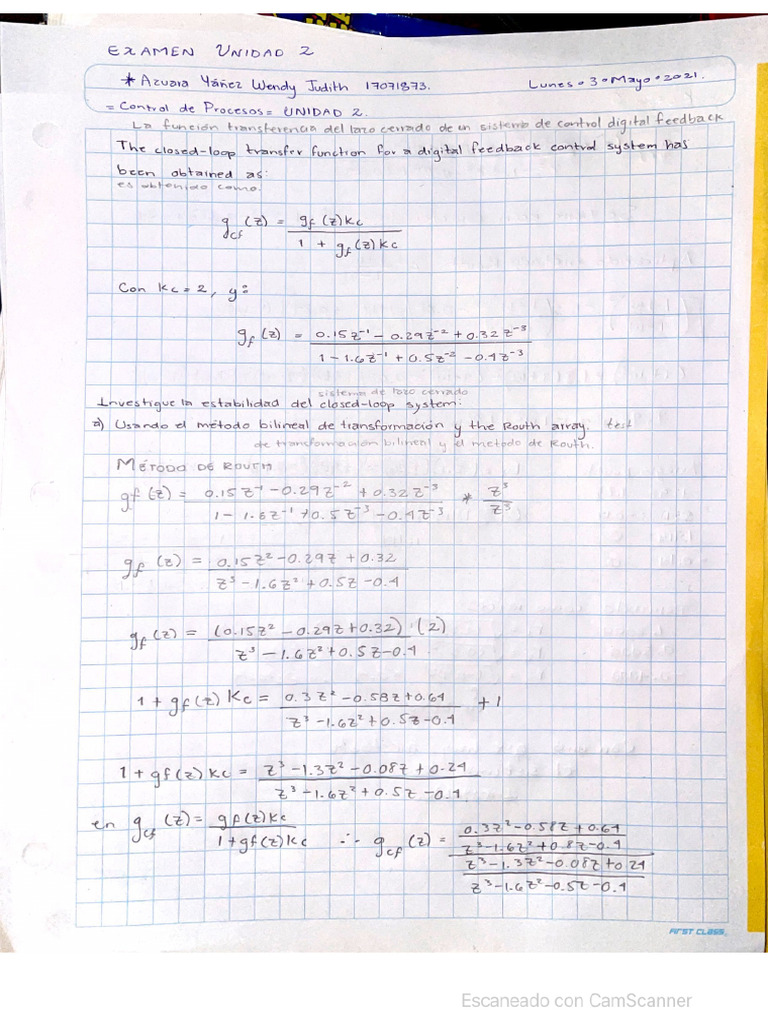 EXAMEN UNIDAD 2
* Azuara Yáñez Wendy Judith 17071873. Lunes • 3 • Mayo • 2021.
= Control de Procesos = UNIDAD 2.
La función transferencia del lazo cerrado de un sistema de control digital feedback
The closed-loop transfer function for a digital feedback control system has
been obtained as:
es obtenido como.
g_cf (z) = g_f (z) Kc / 1 + g_f (z) Kc
Con Kc = 2, y:
g_f (z) = 0.15z⁻¹ − 0.29z⁻² + 0.32z⁻³ / 1 − 1.6z⁻¹ + 0.5z⁻² − 0.4z⁻³
sistema de lazo cerrado
Investigue la estabilidad del closed-loop system:
a) Usando el método bilineal de transformación y the Routh array. test
de transformación bilineal y el metodo de Routh.
MÉTODO DE ROUTH
gf (z) = 0.15z⁻¹ − 0.29z⁻² + 0.32z⁻³ / 1 − 1.6z⁻¹ + 0.5z⁻³ − 0.4z⁻³ * z³ / z³
g_f (z) = 0.15z² − 0.29z + 0.32 / z³ − 1.6z² + 0.5z − 0.4
g_f (z) = (0.15z² − 0.29z + 0.32) (2) / z³ − 1.6z² + 0.5z − 0.4
1 + g_f (z) Kc = 0.3z² − 0.58z + 0.64 / z³ − 1.6z² + 0.5z − 0.4 + 1
1 + gf (z) Kc = z³ − 1.3z² − 0.08z + 0.24 / z³ − 1.6z² + 0.5z − 0.4
en g_cf (z) = gf(z)Kc / 1 + gf(z)Kc ∴ g_cf (z) = 0.3z² − 0.58z + 0.64 / z³ − 1.6z² + 0.8z − 0.4 / z³ − 1.3z² − 0.08z + 0.24 / z³ − 1.6z² − 0.5z − 0.4
FIRST CLASS
Escaneado con CamScanner